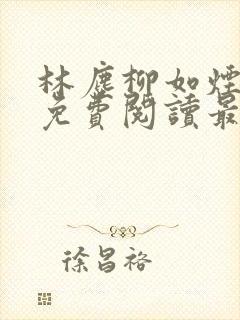 林塵柳如煙
免費閱讀最
徐昌裕